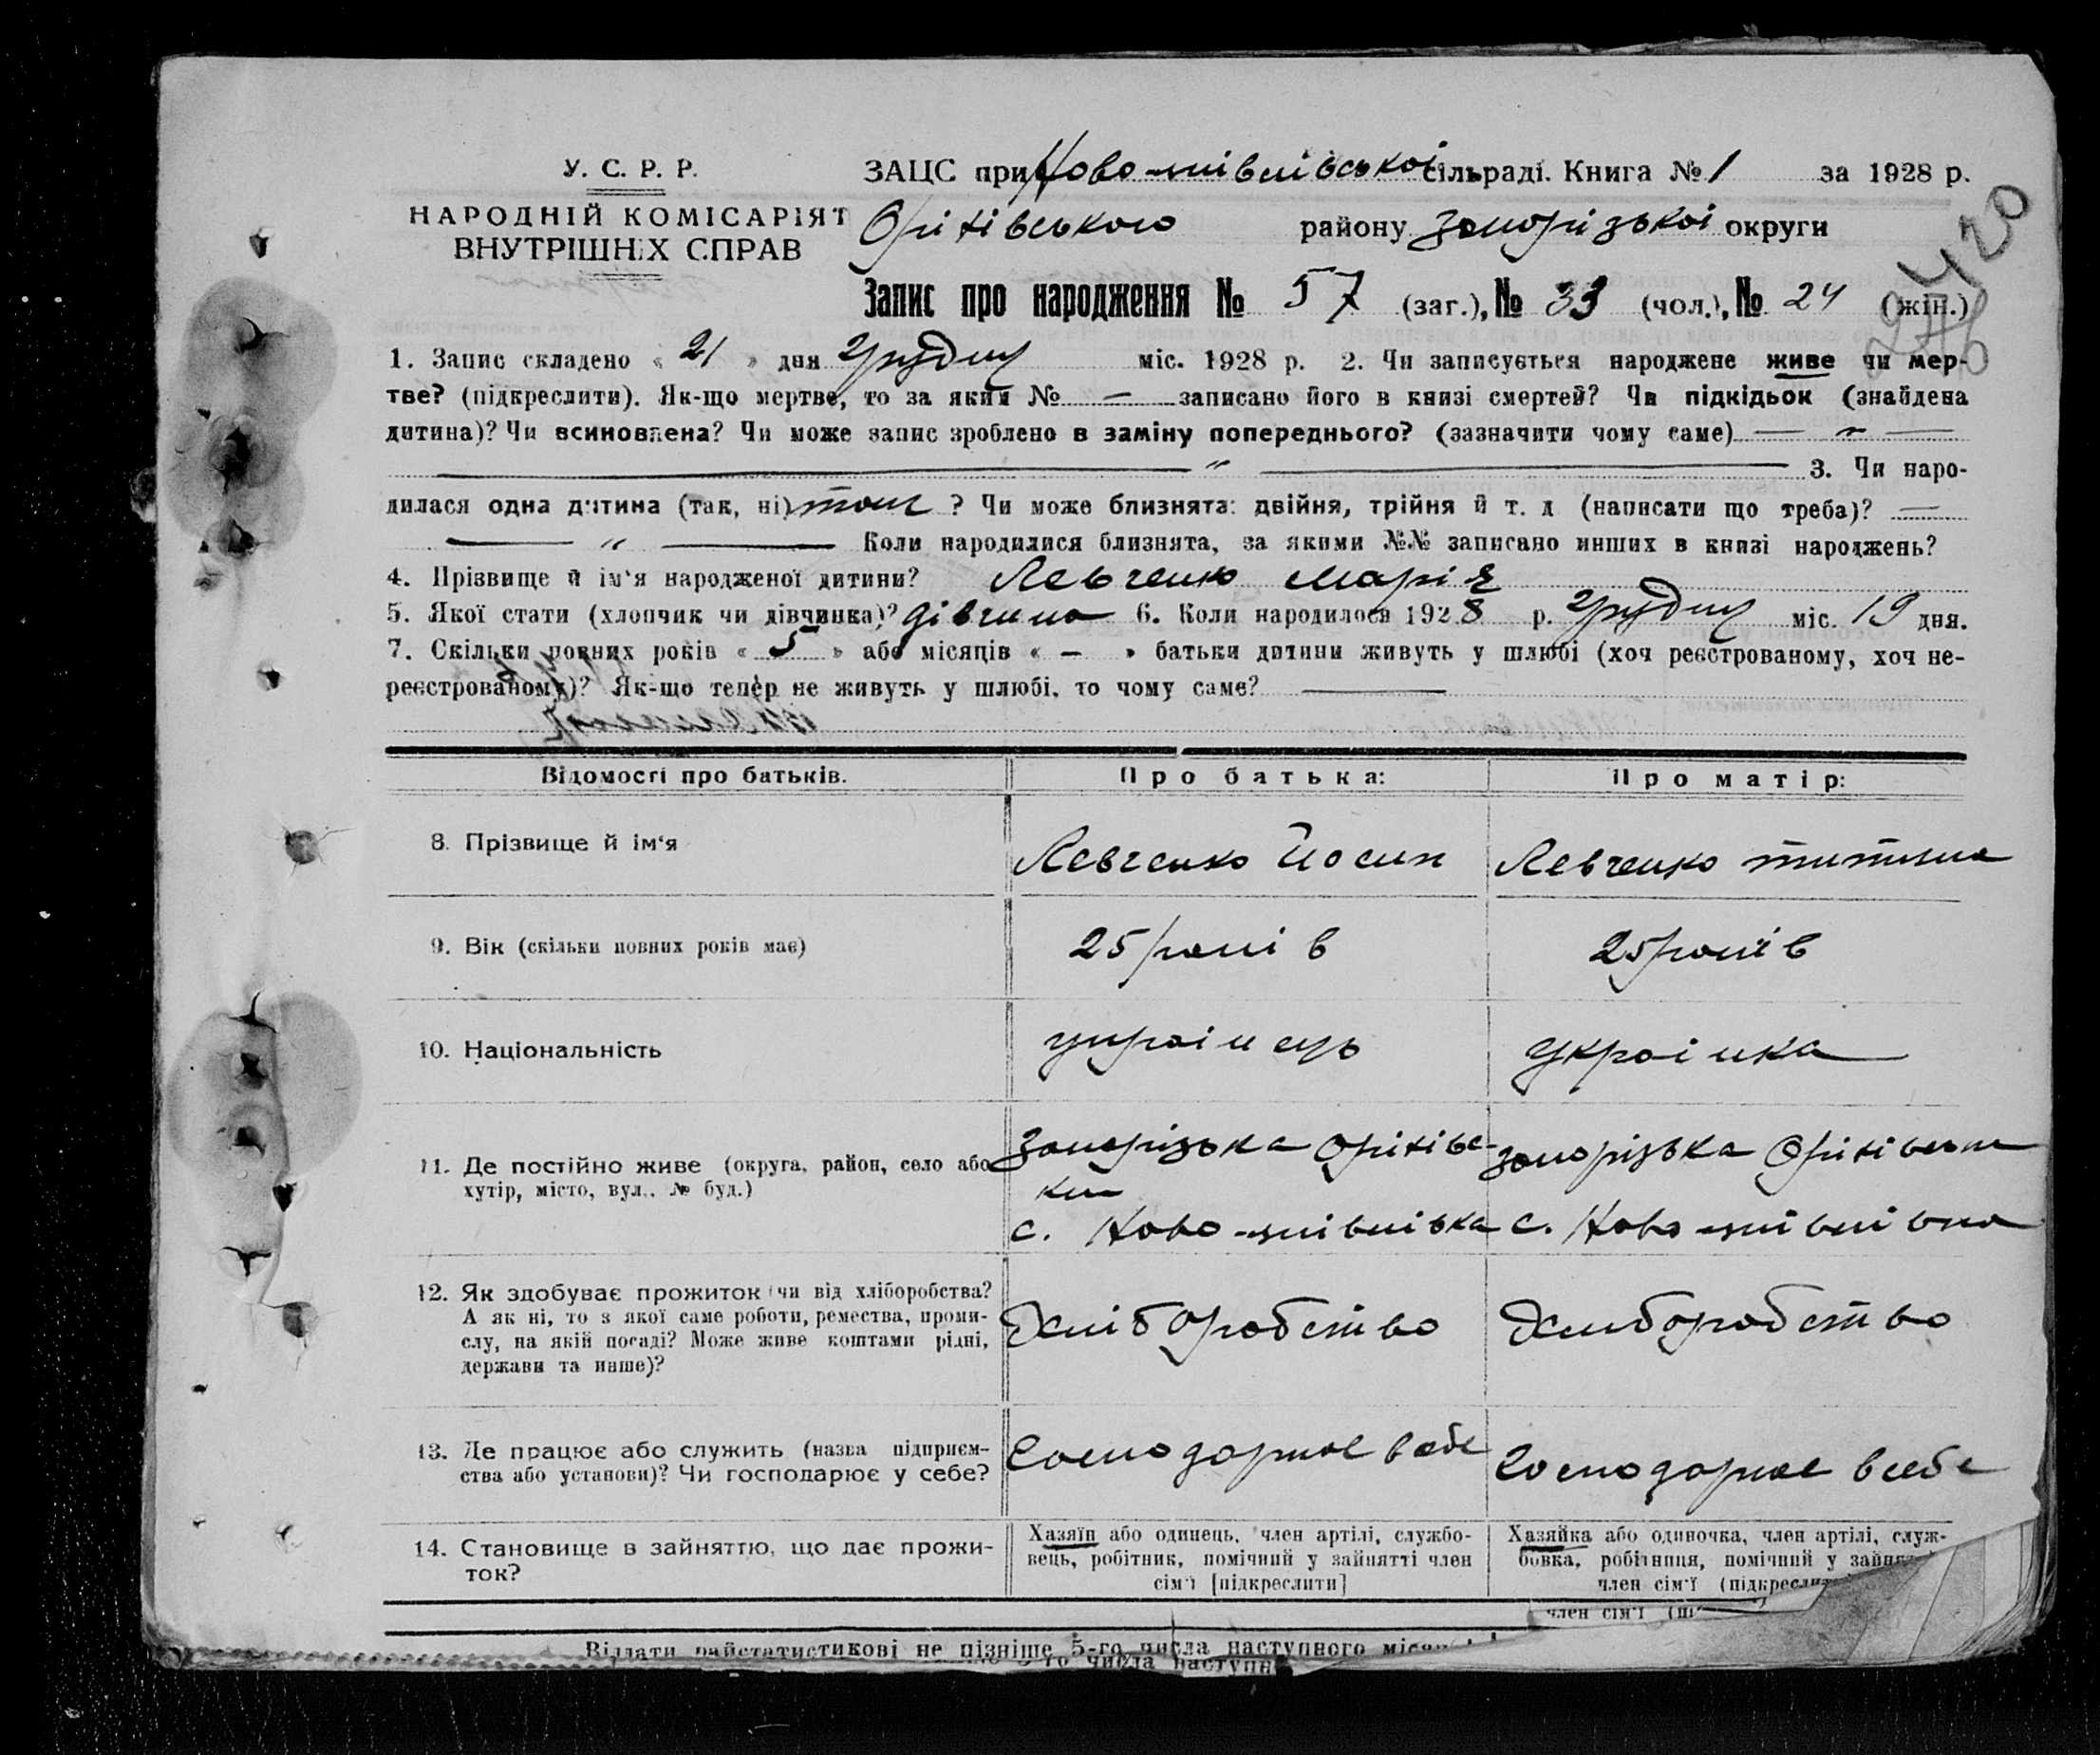 У. С. Р. Р.
НАРОДНІЙ КОМІСАРІЯТ
ВНУТРІШНІХ СПРАВ
ЗАЦС при сільраді. Книга № 1 за 1928 р.
Оріхівського району Запорізької округи
Запис про народження № 57 (заг.), № 33 (чол.), № 24 (жін.)
420
1. Запис складено « 21 » дня Грудня міс. 1928 р. 2. Чи записується народжене живе чи мер-
тве? (підкреслити). Як-що мертве, то за яким № — записано його в книзі смертей? Чи підкідьок (знайдена
дитина)? Чи всиновлена? Чи може запис зроблено в заміну попереднього? (зазначити чому саме) — „ —
— „ — 3. Чи наро-
дилася одна дитина (так, ні) так ? Чи може близнята: двійня, трійня й т. д (написати що треба)? —
— „ — Коли народилися близнята, за якими №№ записано инших в книзі народжень?
4. Прізвище й ім'я народженої дитини? Левченко Марія
5. Якої стати (хлопчик чи дівчинка)? дівчина 6. Коли народилося 1928 р. Грудня міс. 19 дня.
7. Скільки повних років « 5 » або місяців « — » батьки дитини живуть у шлюбі (хоч реєстрованому, хоч не-
реєстрованому)? Як-що тепер не живуть у шлюбі, то чому саме? —
Відомості про батьків. Про батька: Про матір:
8. Прізвище й ім'я Левченко Йосип Левченко
9. Вік (скільки повних років має) 25 років 25 років
10. Національність українець Українка
11. Де постійно живе (округа, район, село або
хутір, місто, вул., № буд.)
Запорізька Оріхівс-
ка
с. Ново-
Запорізька Оріхівська
с. Ново-
12. Як здобуває прожиток (чи від хліборобства?
А як ні, то з якої саме роботи, ремества, проми-
слу, на якій посаді? Може живе коштами рідні,
держави та инше)?
Хліборобство Хлиборобство
13. Де працює або служить (назва підприєм-
ства або установи)? Чи господарює у себе?
Господарює в себе Господарює в себе
14. Становище в зайняттю, що дає прожи-
ток?
Хазяїн або одинець, член артілі, службо-
вець, робітник, помічний у зайнятті член
сім'ї [підкреслити]
Хазяйка або одиночка, член артілі, служ-
бовка, робітниця, помічний у
член сім'ї
член сім'ї
Віддати райстатистикові не пізніше 5-го числа наступного
числа